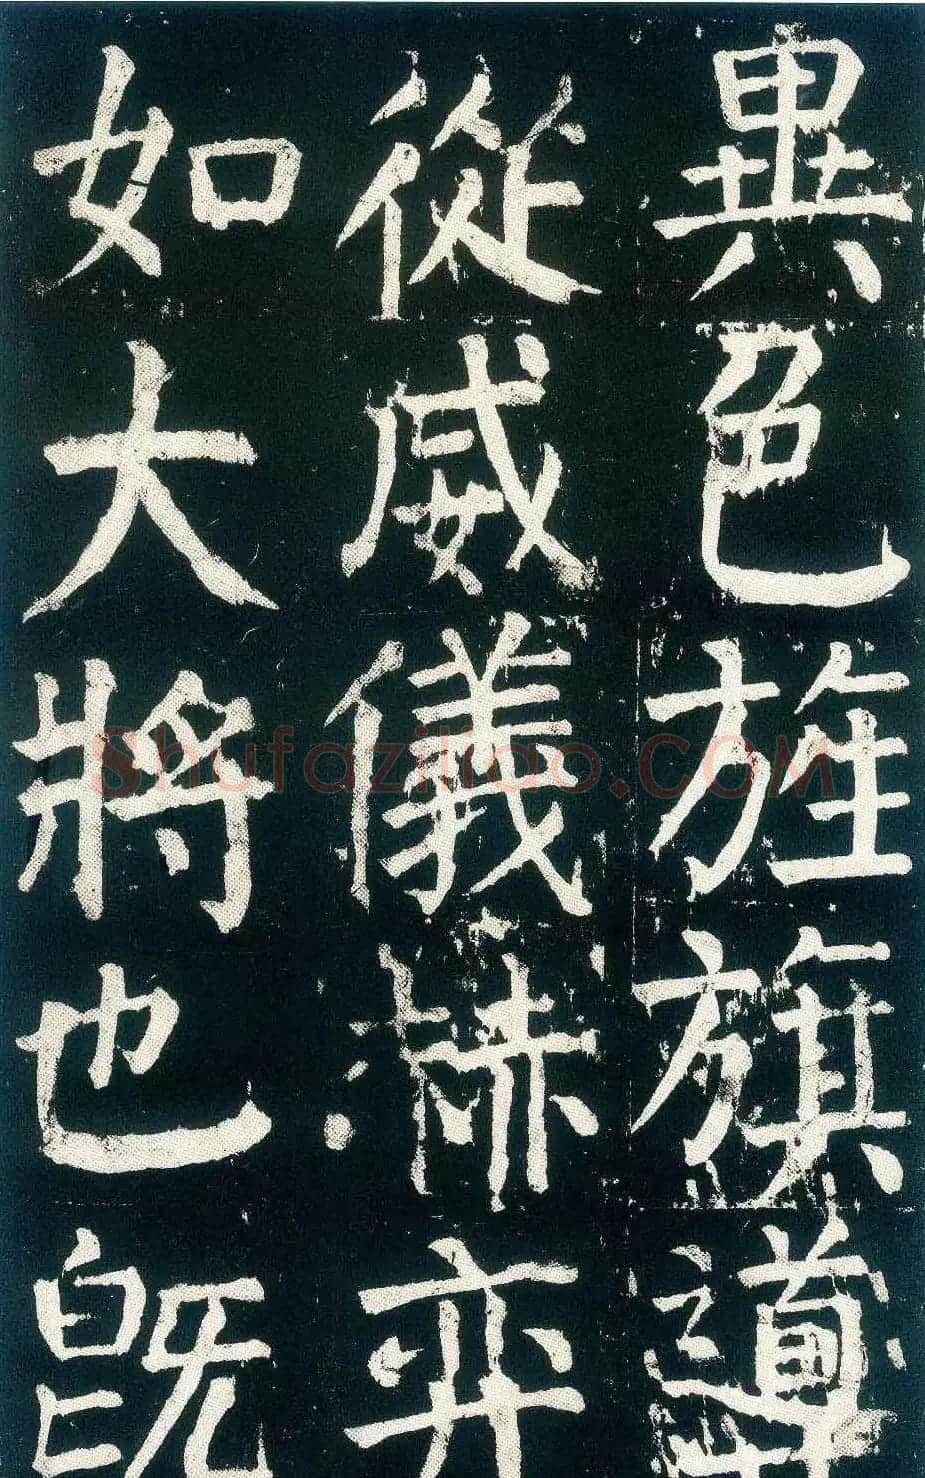 異色旌旗導
從威儀赫弈
如大將也既
Shufaziliao.COM